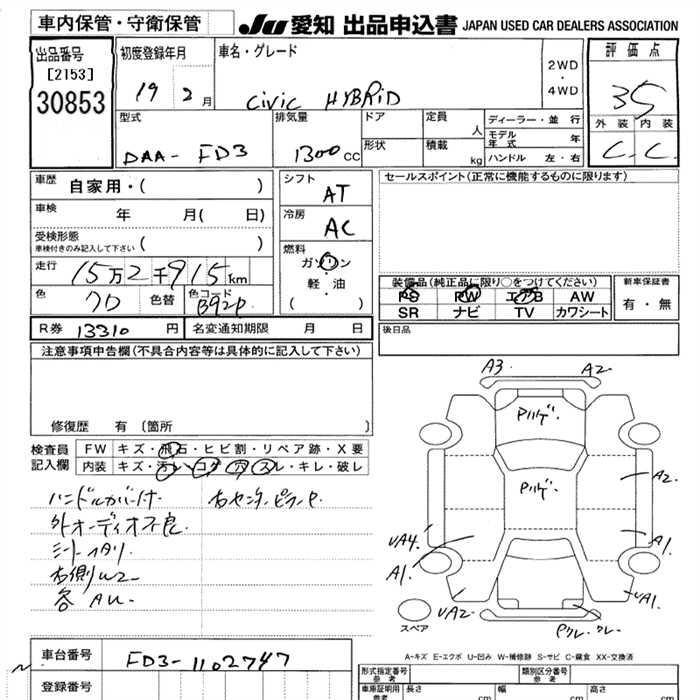 車内保管・守衛保管
JU 愛知 出品申込書 JAPAN USED CAR DEALERS ASSOCIATION
出品番号
[2153]
30853
初度登録年月
19 2 月
車名・グレード
CIVIC HYBRID
2WD
・
4WD
評価点
3.5
外装 内装
C C
型式
DAA-FD3
排気量
1300 CC
ドア
形状
定員
人
積載
kg
ディーラー・並行
モデル年式 年
ハンドル 左・右
車歴 自家用・( )
車検 年 月( 日)
受検形態
車検付きのみ記入して下さい ( )
走行 15万2千915km
色 クロ 色替 色コード B92P
R券 13310 円 名変通知期限 月 日
シフト
AT
冷房
AC
燃料
ガソリン
・
軽・油
( )
セールスポイント(正常に機能するものに限ります)
装備品(純正品に限り○をつけてください)
PS PW エアB AW
SR ナビ TV カワシート
新車保証書
有・無
後日品
注意事項申告欄(不具合内容等は具体的に記入して下さい)
修復歴 有 〔箇所 〕
検査員
記入欄
FW キズ・飛石・ヒビ割・リペア跡・X要
内装 キズ・汚レ・コゲ・穴・スレ・キレ・破レ
ハンドルカバー付 右センターピラーヤ
外オーディオ不良
シート
右側W2
各 AU
A3 A2
Pハゲ
Pハゲ
A2
UA4 A1
A1
UA2 UA1
スペア
A-キズ E-エクボ U-凹み W-補修跡 S-サビ C-腐食 XX-交換済
車台番号 FD3-1102747
登録番号
形式指定番号
参考
類別区分番号
参考
車庫証明用
参考
長さ cm 幅 cm 高さ cm